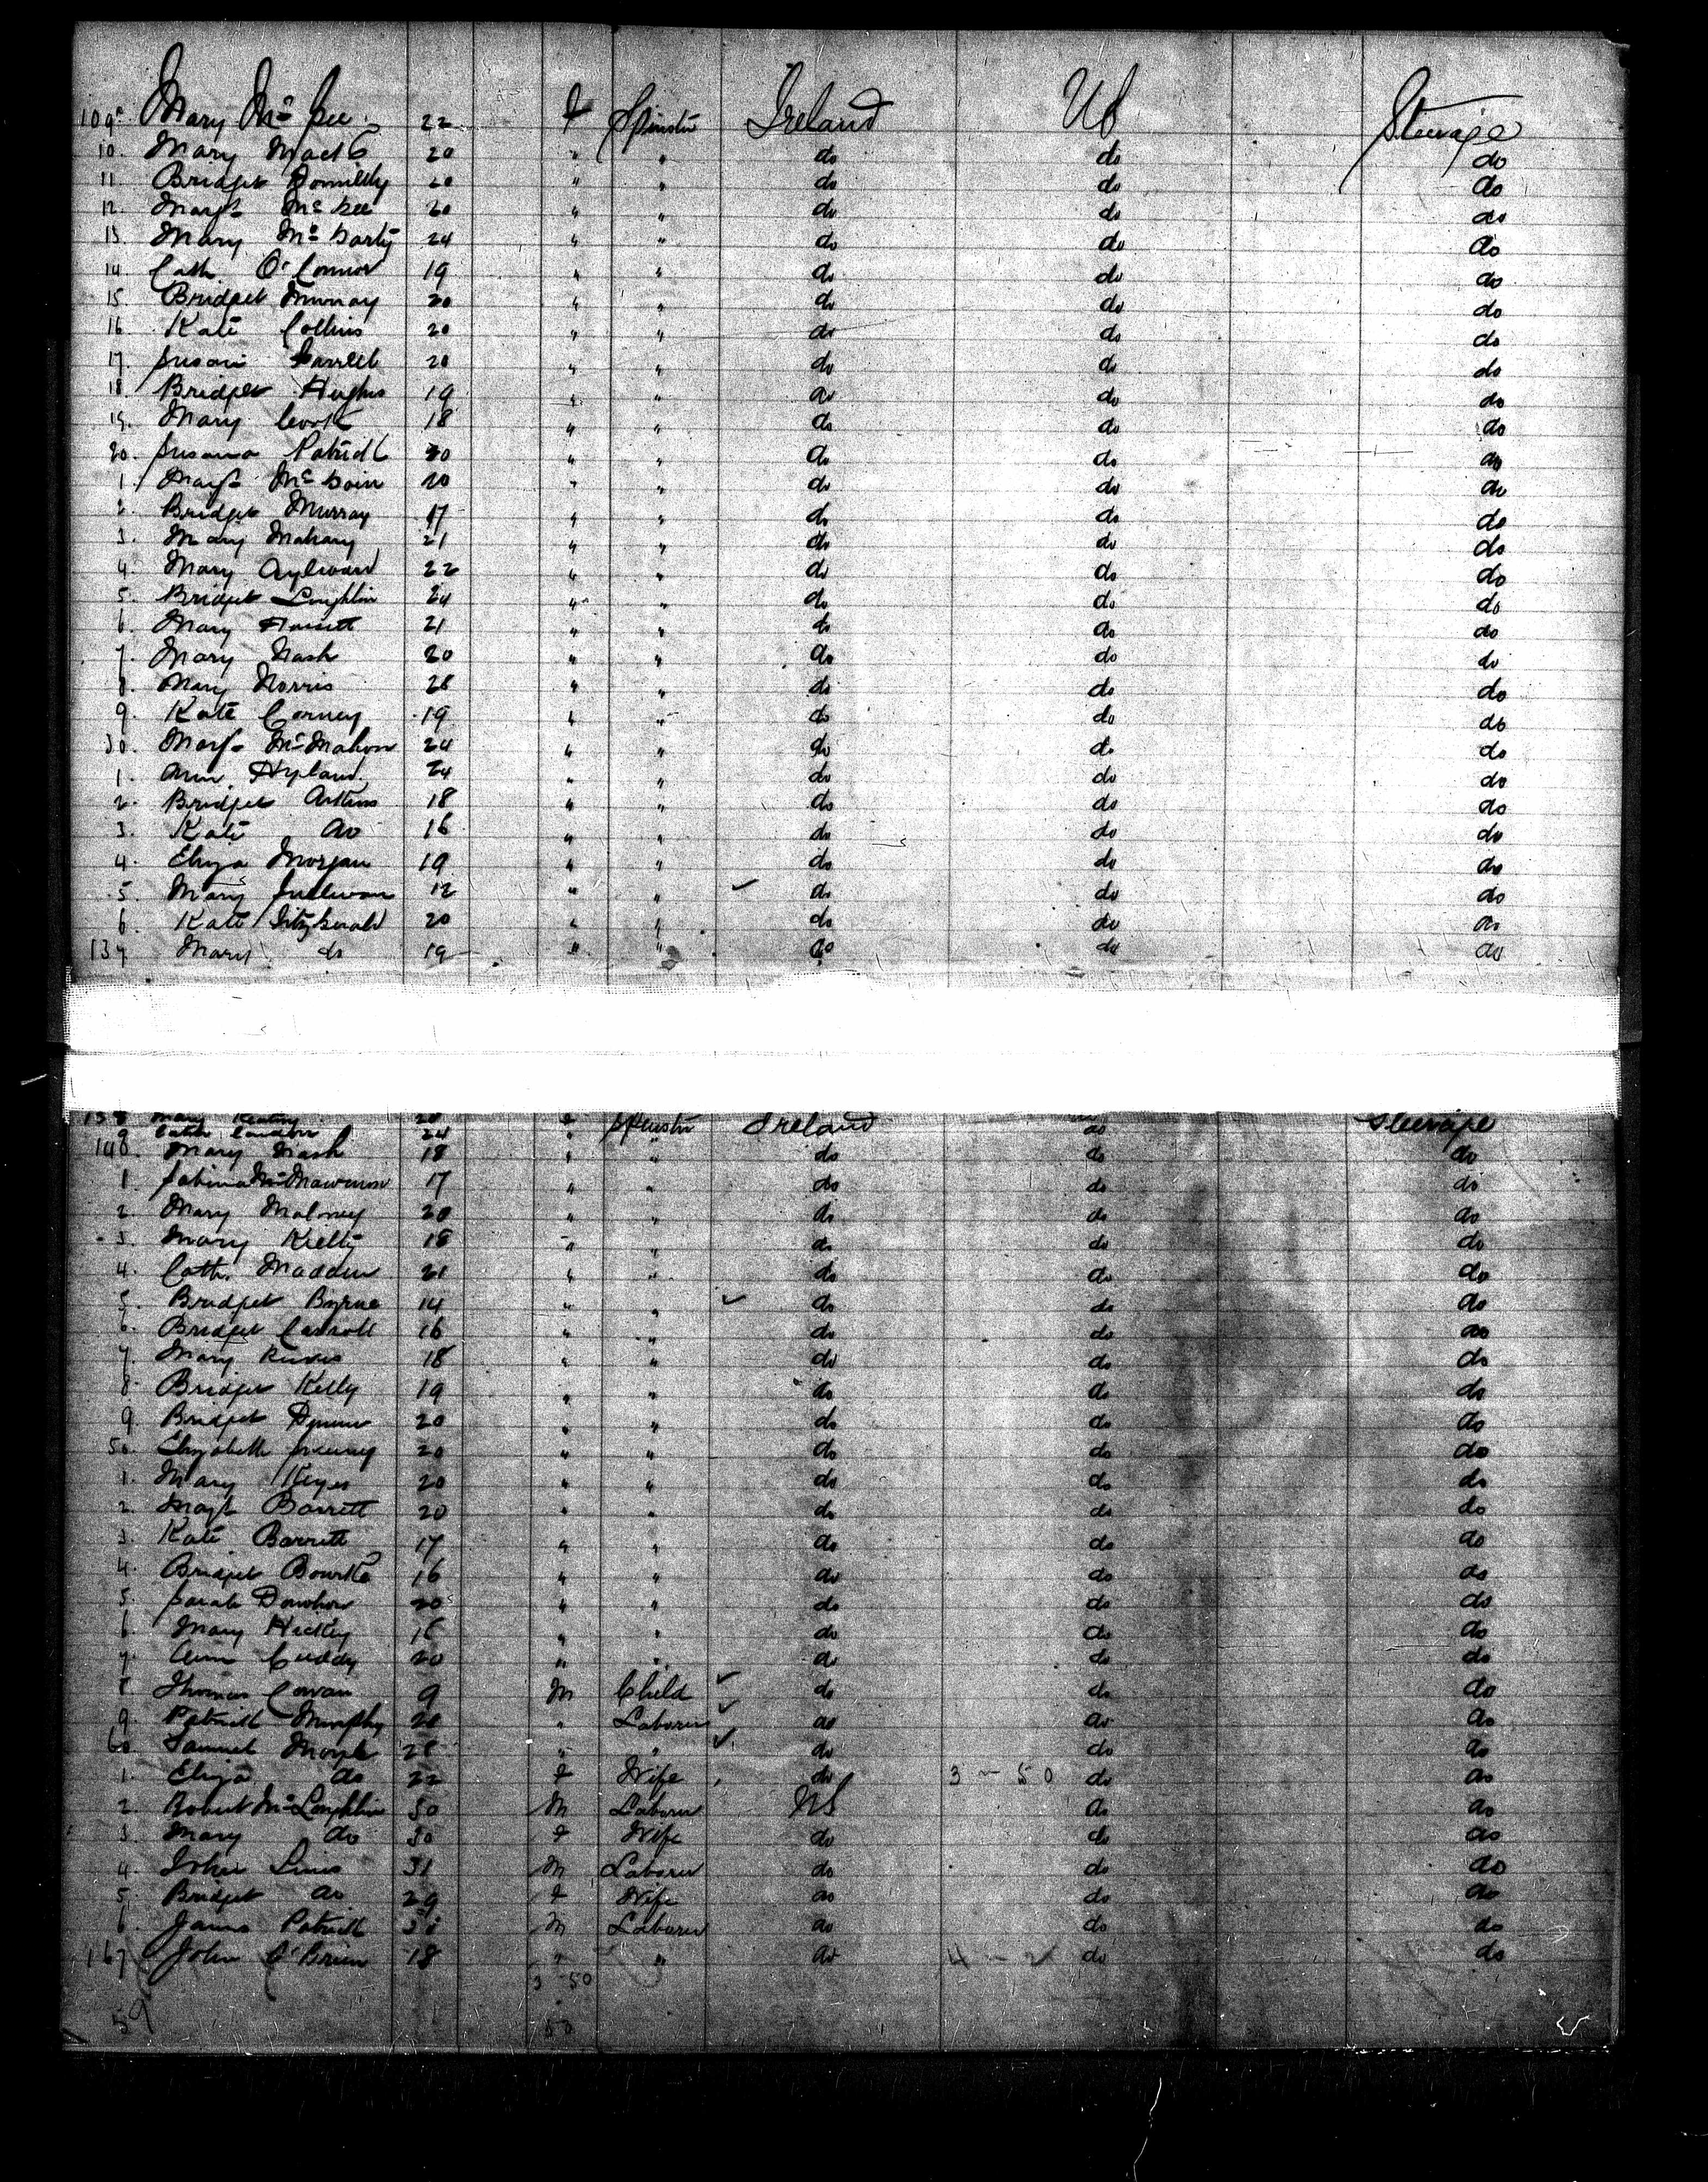 109 Mary McGee 22 F Spinster Ireland US Steerage
10. Mary Mack 20 " " do do do
11 Bridget Donnelly 20 " " do do do
12. Margt McGee 20 " " do do do
13 Mary McGarty 24 " " do do do
14 Cath O'Connor 19 " " do do do
15. Bridget Murray 20 " " do do do
16. Kate Collins 20 " " do do do
17. Susan 20 " " do do do
18 Bridget Hughes 19 " " do do do
19. Mary Cook 18 " " do do do
20. Susanna Patrick 20 " " do do do
1. Margt 20 " " do do do
2. Bridget Murray 17 " " do do do
3. Mary Mahany 21 " " do do do
4. Mary Aylward 22 " " do do do
5. Bridget Loughlin 24 " " do do do
6 Mary 21 " " do do do
7. Mary Nash 20 " " do do do
8. Mary Norris 28 " " do do do
9. Kate Corney 19 " " do do do
30. Margt McMahon 24 " " do do do
1. Ann Hyland 24 " " do do do
2. Bridget 18 " " do do do
3. Kate do 16 " " do do do
4. Eliza Morgan 19 " " do do do
5. Mary Sullivan 12 " " do do do
6. Kate Fitzgerald 20 " " do do do
137 Mary do 19 " " do do do
138 Mary Keating 20 F Spinster Ireland do Steerage
9 Cath 24 "
140. Mary Nash 18 " " do do do
1. Sabina 17 " " do do do
2. Mary Maloney 20 " " do do do
3. Mary Kielty 18 " " do do do
4. Cath. Madden 21 " " do do do
5. Bridget Byrne 14 " " do do do
6. Bridget Carroll 16 " " do do do
7. Mary 18 " " do do do
8 Bridget Kelly 19 " " do do do
9. Bridget 20 " " do do do
50. Elizabeth 20 " " do do do
1. Mary Keyes 20 " " do do do
2. Margt Barrett 20 " " do do do
3. Kate Barrett 17 " " do do do
4. Bridget Bourke 16 " " do do do
5. Sarah Donohoe 20 " " do do do
6. Mary 18 " " do do do
7. Ann Cuddy 20 " " do do do
8 Thomas Cowan 9 M Child do do do
9. Patrick Murphy 20 " Laborer do do do
60 Samuel 28 " " do do do
1. Eliza do 22 F Wife do 3 - 50 do do
2. Robert McLoughlin 30 M Laborer US do do
3 Mary do 30 F Wife do do do
4 John 31 M Laborer do do do
5. Bridget do 29 F Wife do do do
6 James Patrick M Laborer do do do
167 John O'Brien 18 " " do 4 - 2 do do
3 50
59
50